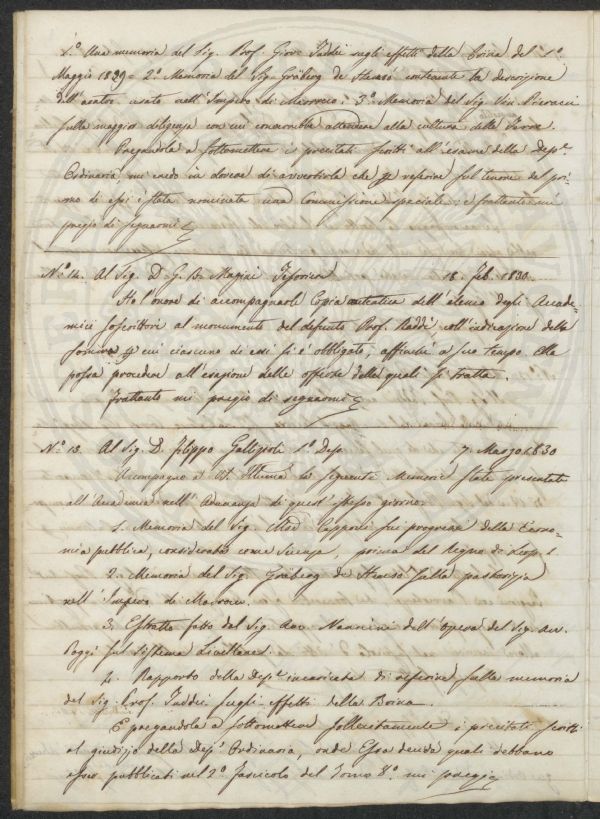 1.º Una memoria del Sig. Prof. Giov. Taddei sugli effetti della Brina del 1.º
Maggio 1829 = 2.º Memoria del Sig. Gräberg de Hemsö contenente la descrizione
dell'aratro usato nell'Impero di Marocco: 3.º Memoria del Sig. Vin. Pieracci
sulla maggior diligenza con cui converrebbe attendere alla cultura delle Terre.
Pregandola a sottomettere i precitati scritti all'esame della Dep.e
Ordinaria, mi credo in dovere di avvertirla che p. referire sul tenore del pri-
mo di essi è stata nominata una Commissione speciale: e frattanto mi
pregio di segnarmi
N.º 12. Al Sig. D. G. B. Magini Tesoriere 18. Feb. 1830.
Ho l'onore di accompagnarle Copia autentica dell'elenco degli Accade-
mici soscrittori al monumento del defunto Prof. Raddi coll'indicazione della
somma p. cui ciascuno di essi si è obbligato, affinchè a suo tempo Ella
possa procedere all'esazione delle offerte delle quali si tratta.
Frattanto mi pregio di segnarmi
N.º 13. Al Sig. D. Filippo Gallizioli 1.º Dep. 7. Marzo 1830
Accompagno a VS. Illma le seguenti Memorie state presentate
all'Accademia nell'Adunanza di quest'istesso giorno.
1. Memoria del Sig. Capponi sui progressi della Econo-
mia pubblica, considerata come Scienza, prima del Regno di Leop. I
2. Memoria del Sig. Gräberg de Hemsö sulla pastorizia
nell'Impero di Marocco.
3. Estratto fatto dal Sig. Avv. Nannini dell'opera del Sig. Avv.
Poggi sul sistema Livellare.
4. Rapporto della Dep.e incaricata di referire sulla memoria
del Sig. Prof. Taddei sugli effetti della Brina.
E pregandola a sottomettere sollecitamente i precitati scritti
al giudizio della Dep.e Ordinaria, onde Essa decida quali debbano
esser pubblicati nel 2.º Fascicolo del Tomo 8.º mi pregio